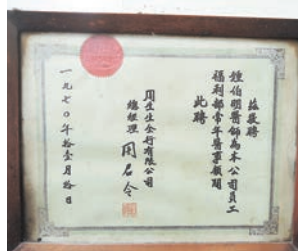 茲敬聘
鍾伯明醫師為本公司員工
福利部常年醫事顧問
此聘
周生生金行有限公司
總經理 周君令
一九七〇年拾壹月拾日